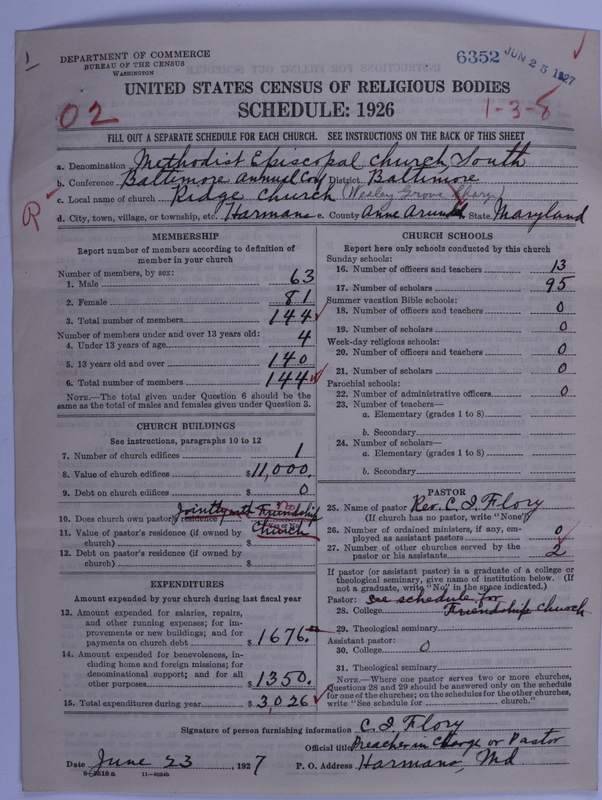 1
DEPARTMENT OF COMMERCE
BUREAU OF THE CENSUS
WASHINGTON
6352 JUN 25 1927
UNITED STATES CENSUS OF RELIGIOUS BODIES
SCHEDULE: 1926
02
1-3-8
FILL OUT A SEPARATE SCHEDULE FOR EACH CHURCH. SEE INSTRUCTIONS ON THE BACK OF THIS SHEET
a. Denomination Methodist Episcopal Church South
b. Conference Baltimore Annual Conf District Baltimore
c. Local name of church Ridge Church (Wesley Grove Charge)
R
d. City, town, village, or township, etc. Harmans e. County Anne Arundel State Maryland
MEMBERSHIP
Report number of members according to definition of
member in your church
Number of members, by sex:
1. Male 63
2. Female 81
3. Total number of members 144
Number of members under and over 13 years old:
4. Under 13 years of age 4
5. 13 years old and over 140
6. Total number of members 144
NOTE.—The total given under Question 6 should be the
same as the total of males and females given under Question 3.
CHURCH BUILDINGS
See instructions, paragraphs 10 to 12
7. Number of church edifices 1
8. Value of church edifices $11,000.
9. Debt on church edifices $ 0
10. Does church own pastor's residence Jointly with Friendship
Church
11. Value of pastor's residence (if owned by
church) $
12. Debt on pastor's residence (if owned by
church) $
EXPENDITURES
Amount expended by your church during last fiscal year
13. Amount expended for salaries, repairs,
and other running expenses; for im-
provements or new buildings; and for
payments on church debt $1676.
14. Amount expended for benevolences, in-
cluding home and foreign missions; for
denominational support; and for all
other purposes $1350.
15. Total expenditures during year $3026
CHURCH SCHOOLS
Report here only schools conducted by this church
Sunday schools:
16. Number of officers and teachers 13
17. Number of scholars 95
Summer vacation Bible schools:
18. Number of officers and teachers 0
19. Number of scholars 0
Week-day religious schools:
20. Number of officers and teachers 0
21. Number of scholars 0
Parochial schools:
22. Number of administrative officers 0
23. Number of teachers—
a. Elementary (grades 1 to 8)
b. Secondary
24. Number of scholars—
a. Elementary (grades 1 to 8)
b. Secondary
PASTOR
25. Name of pastor Rev. C. I. Flory
(If church has no pastor, write "None")
26. Number of ordained ministers, if any, em-
ployed as assistant pastors 0
27. Number of other churches served by the
pastor or his assistants 2
If pastor (or assistant pastor) is a graduate of a college or
theological seminary, give name of institution below. (If
not a graduate, write "No" in the space indicated.)
Pastor: See schedule for
28. College Friendship Church
29. Theological seminary
Assistant pastor:
30. College 0
31. Theological seminary
NOTE.—Where one pastor serves two or more churches,
Questions 28 and 29 should be answered only on the schedule
for one of the churches; on the schedules for the other churches,
write "See schedule for church."
Signature of person furnishing information C. I. Flory
Official title Preacher in Charge or Pastor
Date June 23, 1927 P. O. Address Harmans, Md